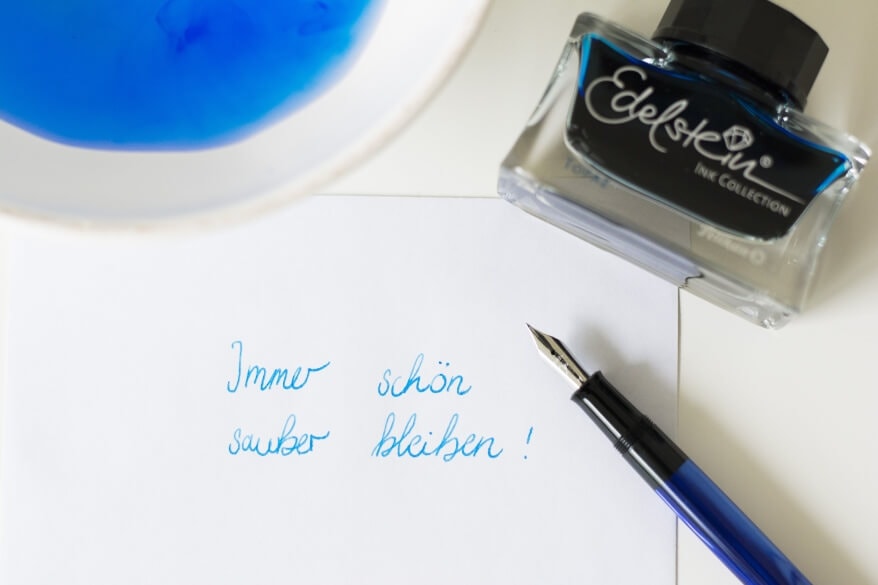 Edelstein®
INK COLLECTION
Immer schön
sauber bleiben !